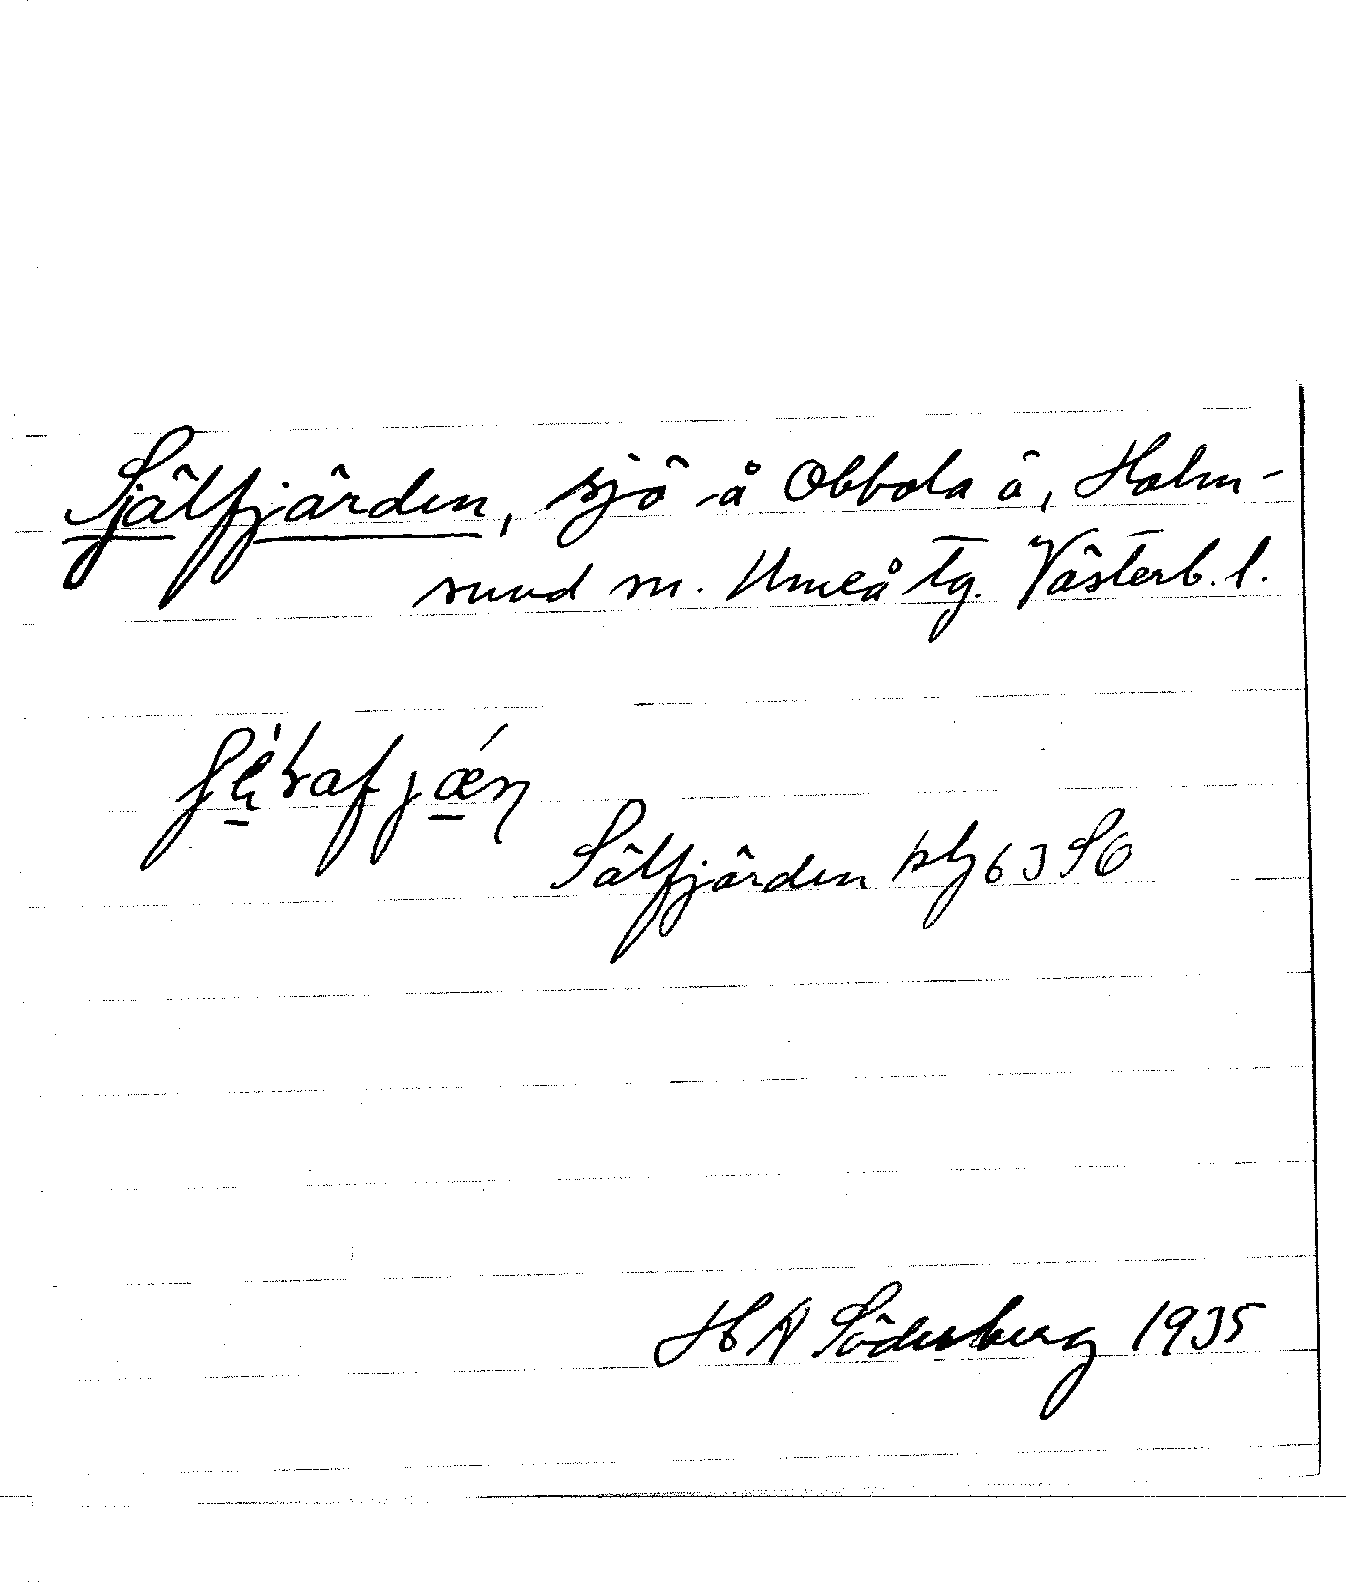 Själfjärden, sjö å Obbola ö, Holm-
sund sn. Umeå tg. Västerb. l.
Sälfjärden blg 63 SO
H A Söderberg 1935